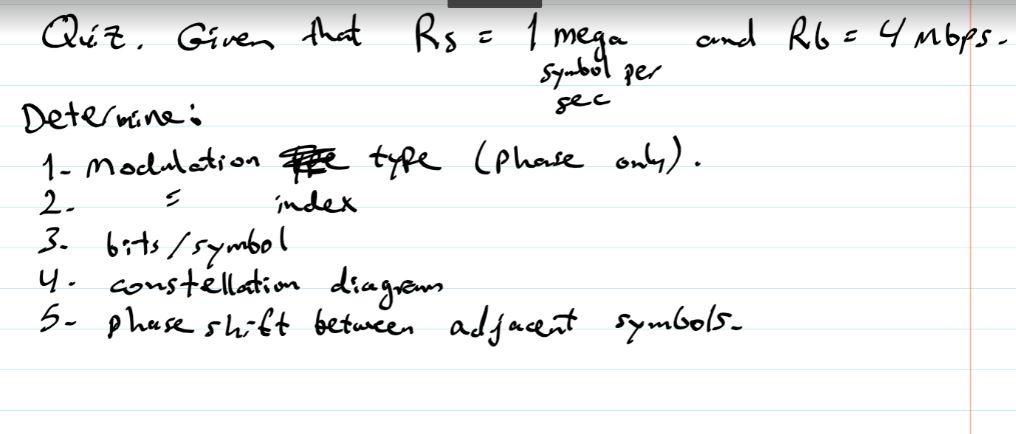 Quiz. Given that Rs = 1 mega symbol per sec and Rb = 4 Mbps.
Determine:
1- Modulation type (phase only).
2- = index
3- bits/symbol
4- constellation diagram
5- phase shift between adjacent symbols.